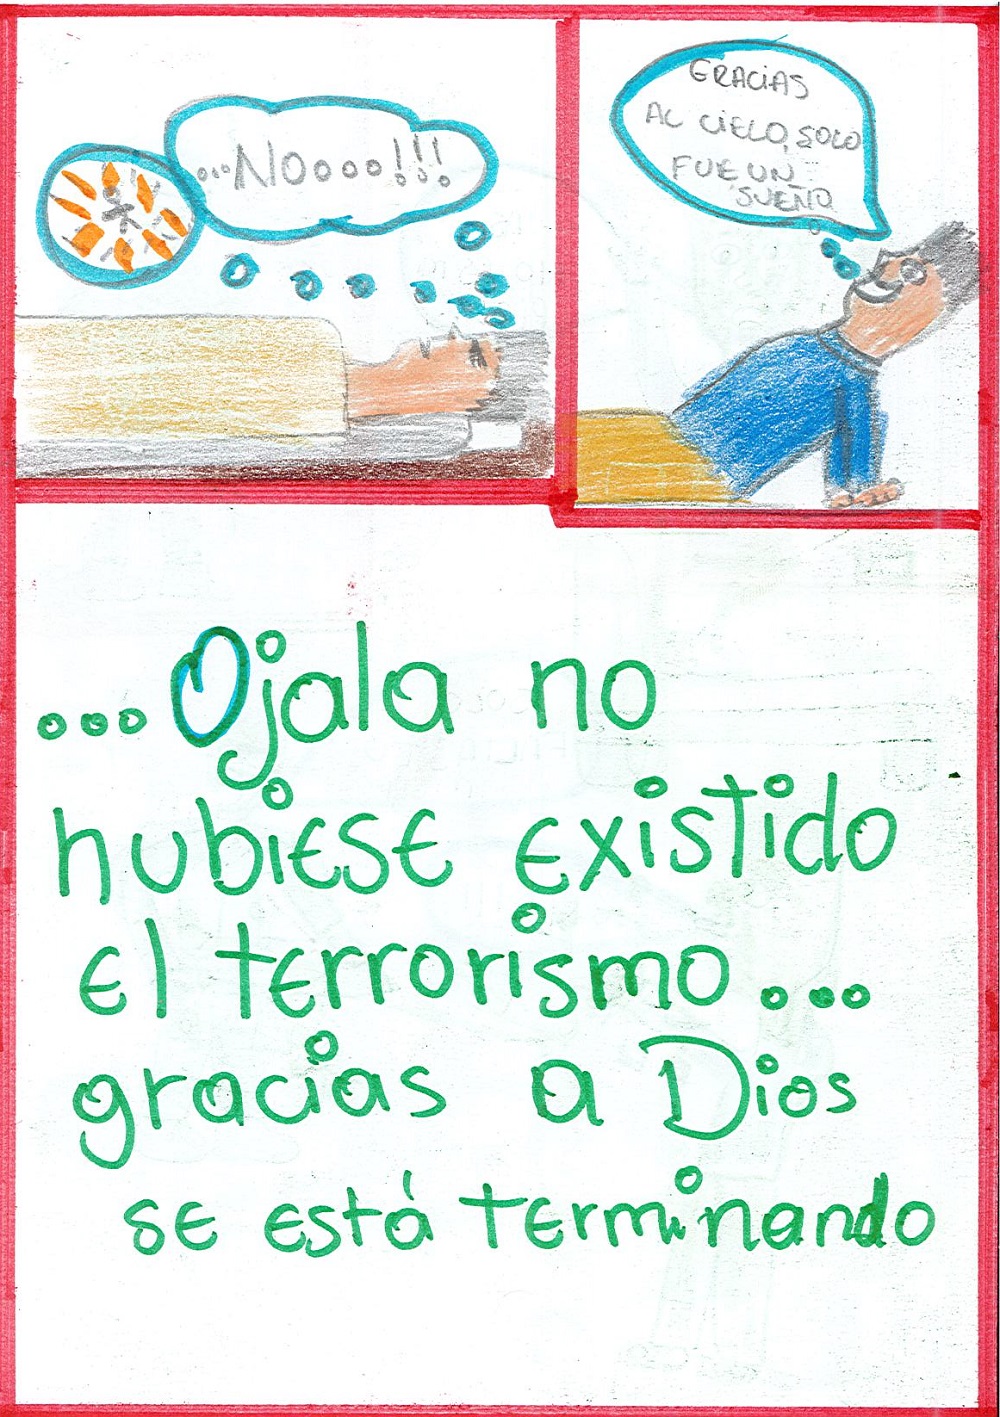 ...NOoooo!!!
GRACIAS
AL CIELO, SOLO
FUE UN
SUEÑO
...Ojala no
hubiese existido
el terrorismo...
gracias a Dios
se está terminando